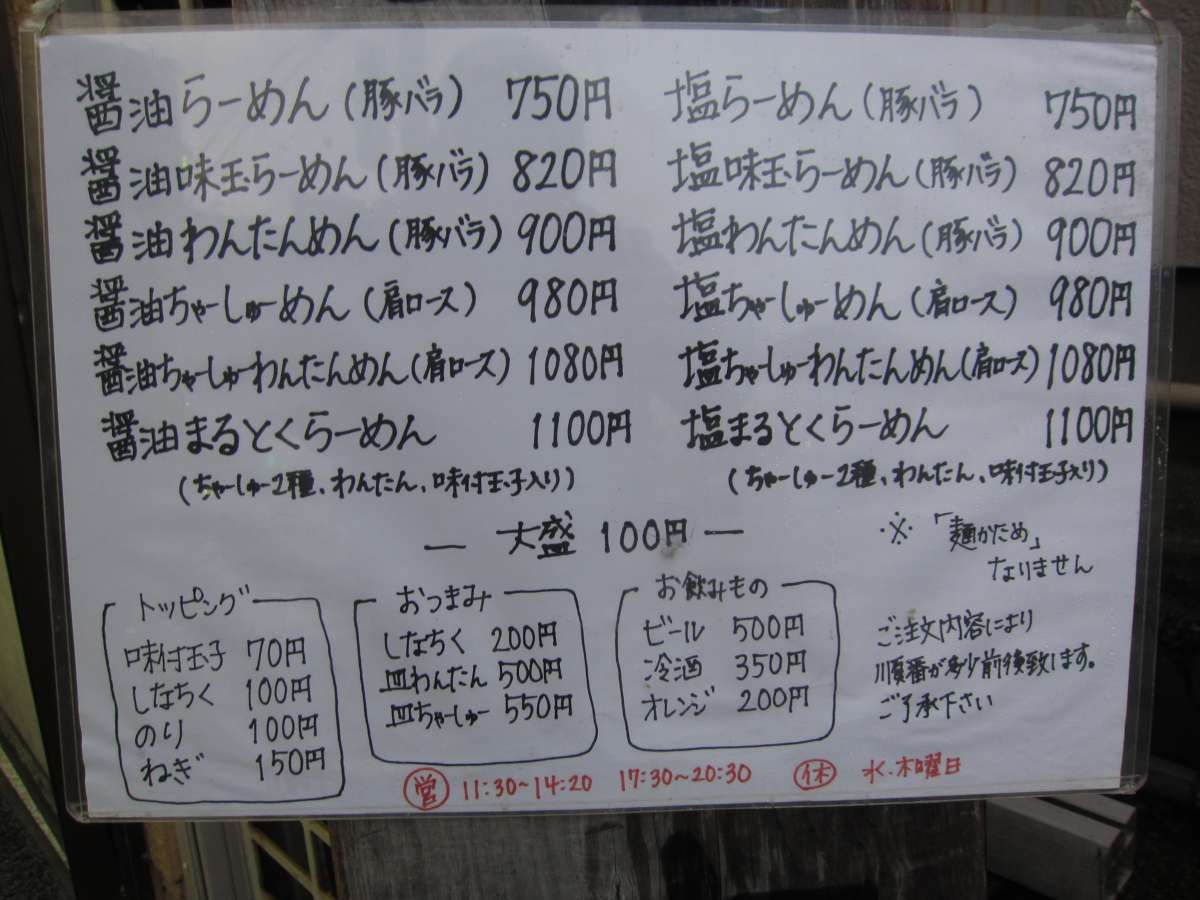 醤油らーめん(豚バラ) 750円
醤油味玉らーめん(豚バラ) 820円
醤油わんたんめん(豚バラ) 900円
醤油ちゃーしゅーめん(肩ロース) 980円
醤油ちゃーしゅーわんたんめん(肩ロース) 1080円
醤油まるとくらーめん 1100円
(ちゃーしゅー2種、わんたん、味付玉子入り)
塩らーめん(豚バラ) 750円
塩味玉らーめん(豚バラ) 820円
塩わんたんめん(豚バラ) 900円
塩ちゃーしゅーめん(肩ロース) 980円
塩ちゃーしゅーわんたんめん(肩ロース) 1080円
塩まるとくらーめん 1100円
(ちゃーしゅー2種、わんたん、味付玉子入り)
― 大盛 100円 ―
※「麺かため」
なりません
トッピング
味付玉子 70円
しなちく 100円
のり 100円
ねぎ 150円
おつまみ
しなちく 200円
皿わんたん 500円
皿ちゃーしゅー 550円
お飲みもの
ビール 500円
冷酒 350円
オレンジ 200円
ご注文内容により
順番が多少前後致します。
ご了承下さい
営 11:30~14:20 17:30~20:30 休 水.木曜日